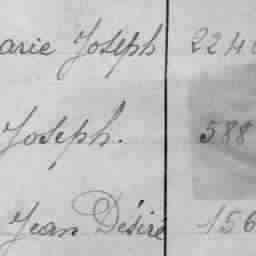 arie Joseph 224
Joseph. 588
Jean Désiré 156